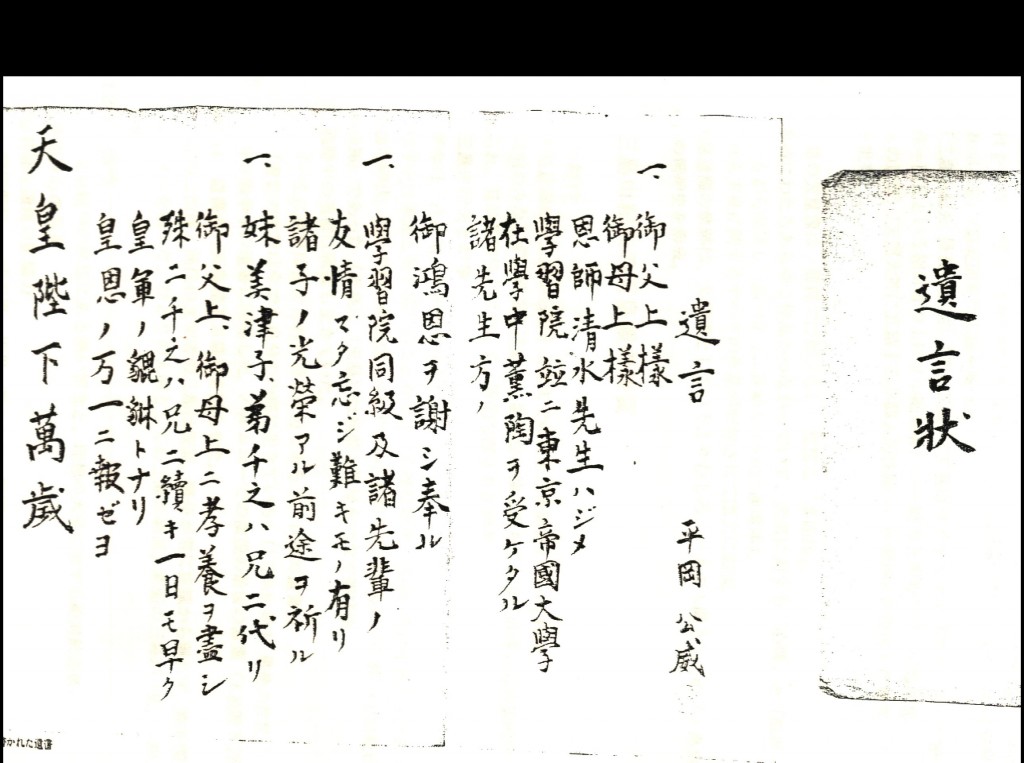 遺言状
遺言
平岡公威
一、御父上様
御母上様
恩師清水先生ハジメ
學習院並ニ東京帝國大學
在學中薫陶ヲ受ケタル
諸先生方ノ
御鴻恩ヲ謝シ奉ル
一、學習院同級及諸先輩ノ
友情マタ忘ジ難キモノ有リ
諸子ノ光榮アル前途ヲ祈ル
一、妹美津子、弟千之ハ兄ニ代リ
御父上、御母上ニ孝養ヲ盡シ
殊ニ千之ハ兄ニ續キ一日モ早ク
皇軍ノ貔貅トナリ
皇恩ノ万一ニ報ゼヨ
天皇陛下萬歳
書かれた遺書